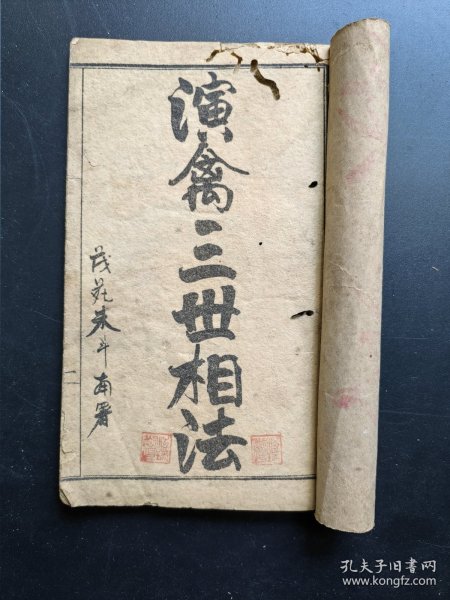 演禽三世相法
茂苑朱斗南署
孔夫子旧书网
www.kongfz.com